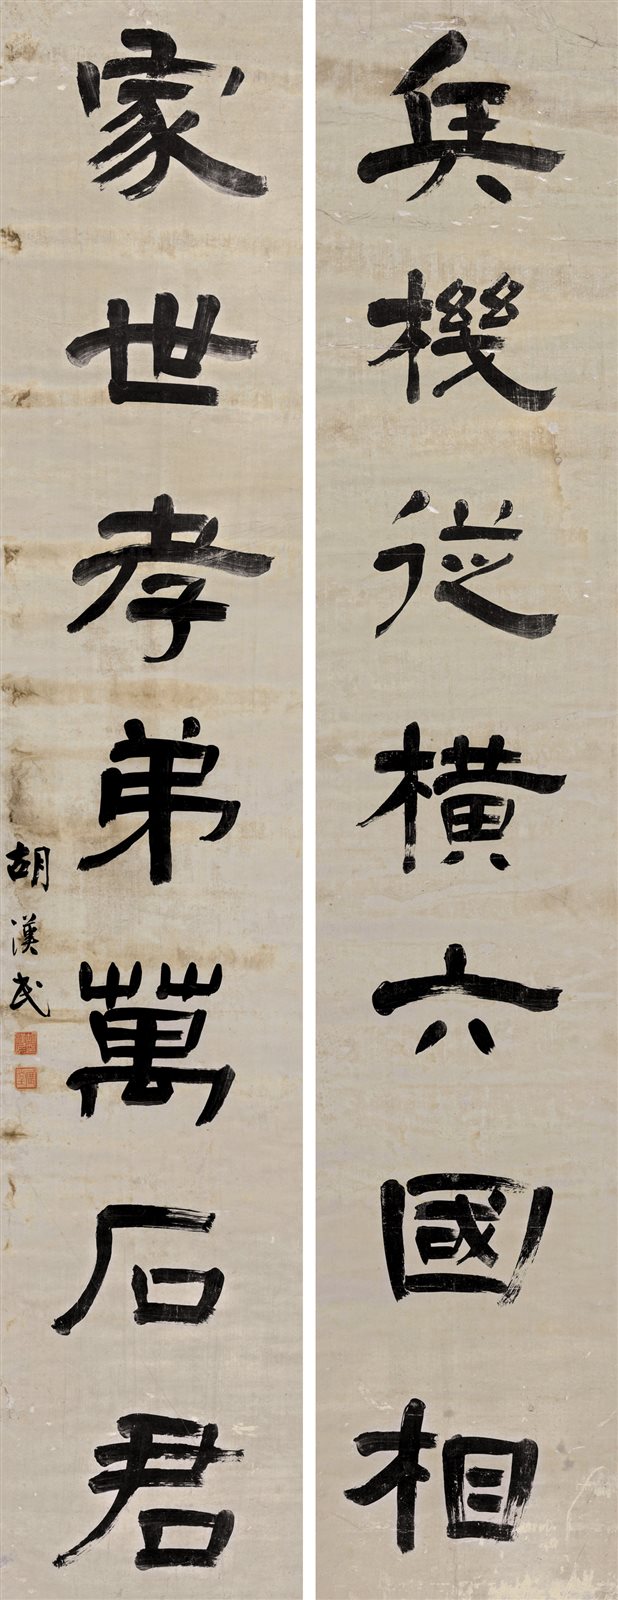 兵機從橫六國相
家世孝弟萬石君
胡漢民